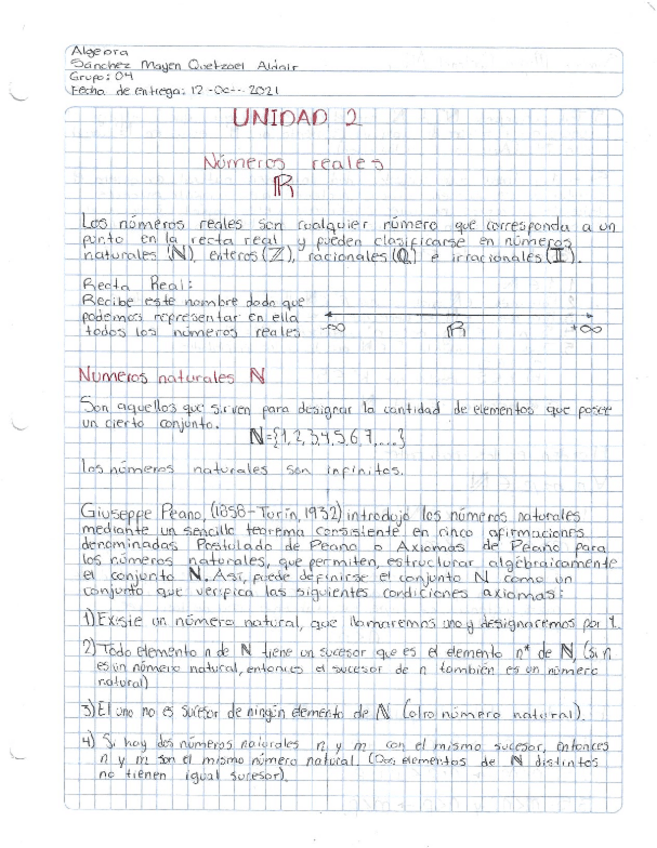 Algebra
Sánchez Mayen Quetzael Alinir
Grupo: 04
Fecha de entrega: 12-Oc-- 2021
UNIDAD 2
Números reales
ℝ
Los números reales son cualquier número que corresponda a un
punto en la recta real y pueden clasificarse en números
naturales (ℕ), enteros (ℤ), racionales (ℚ) e irracionales (𝕀).
Recta Real:
Recibe este nombre dado que
podemos representar en ella
todos los números reales
-∞ ℝ +∞
Numeros naturales ℕ
Son aquellos que sirven para designar la cantidad de elementos que posee
un cierto conjunto.
ℕ={1,2,3,4,5,6,7,....}
los números naturales son infinitos.
Giuseppe Peano, (1858-Turín, 1932) introdujo los números naturales
mediante un sencillo teorema consistente en cinco afirmaciones
denominadas Postulado de Peano o Axiomas de Peano para
los números naturales, que permiten, estructurar algebraicamente
el conjunto ℕ. Así, puede definirse el conjunto ℕ como un
conjunto que verifica las siguientes condiciones axiomas:
1) Existe un número natural, que llamaremos uno y designaremos por 1.
2) Todo elemento n de ℕ tiene un sucesor que es el elemento n* de ℕ, (si n
es un número natural, entonces el sucesor de n también es un número
natural)
3) El uno no es sucesor de ningún elemento de ℕ (otro número natural).
4) Si hay dos números naturales n y m con el mismo sucesor, entonces
n y m son el mismo número natural. (Dos elementos de ℕ distintos
no tienen igual sucesor).